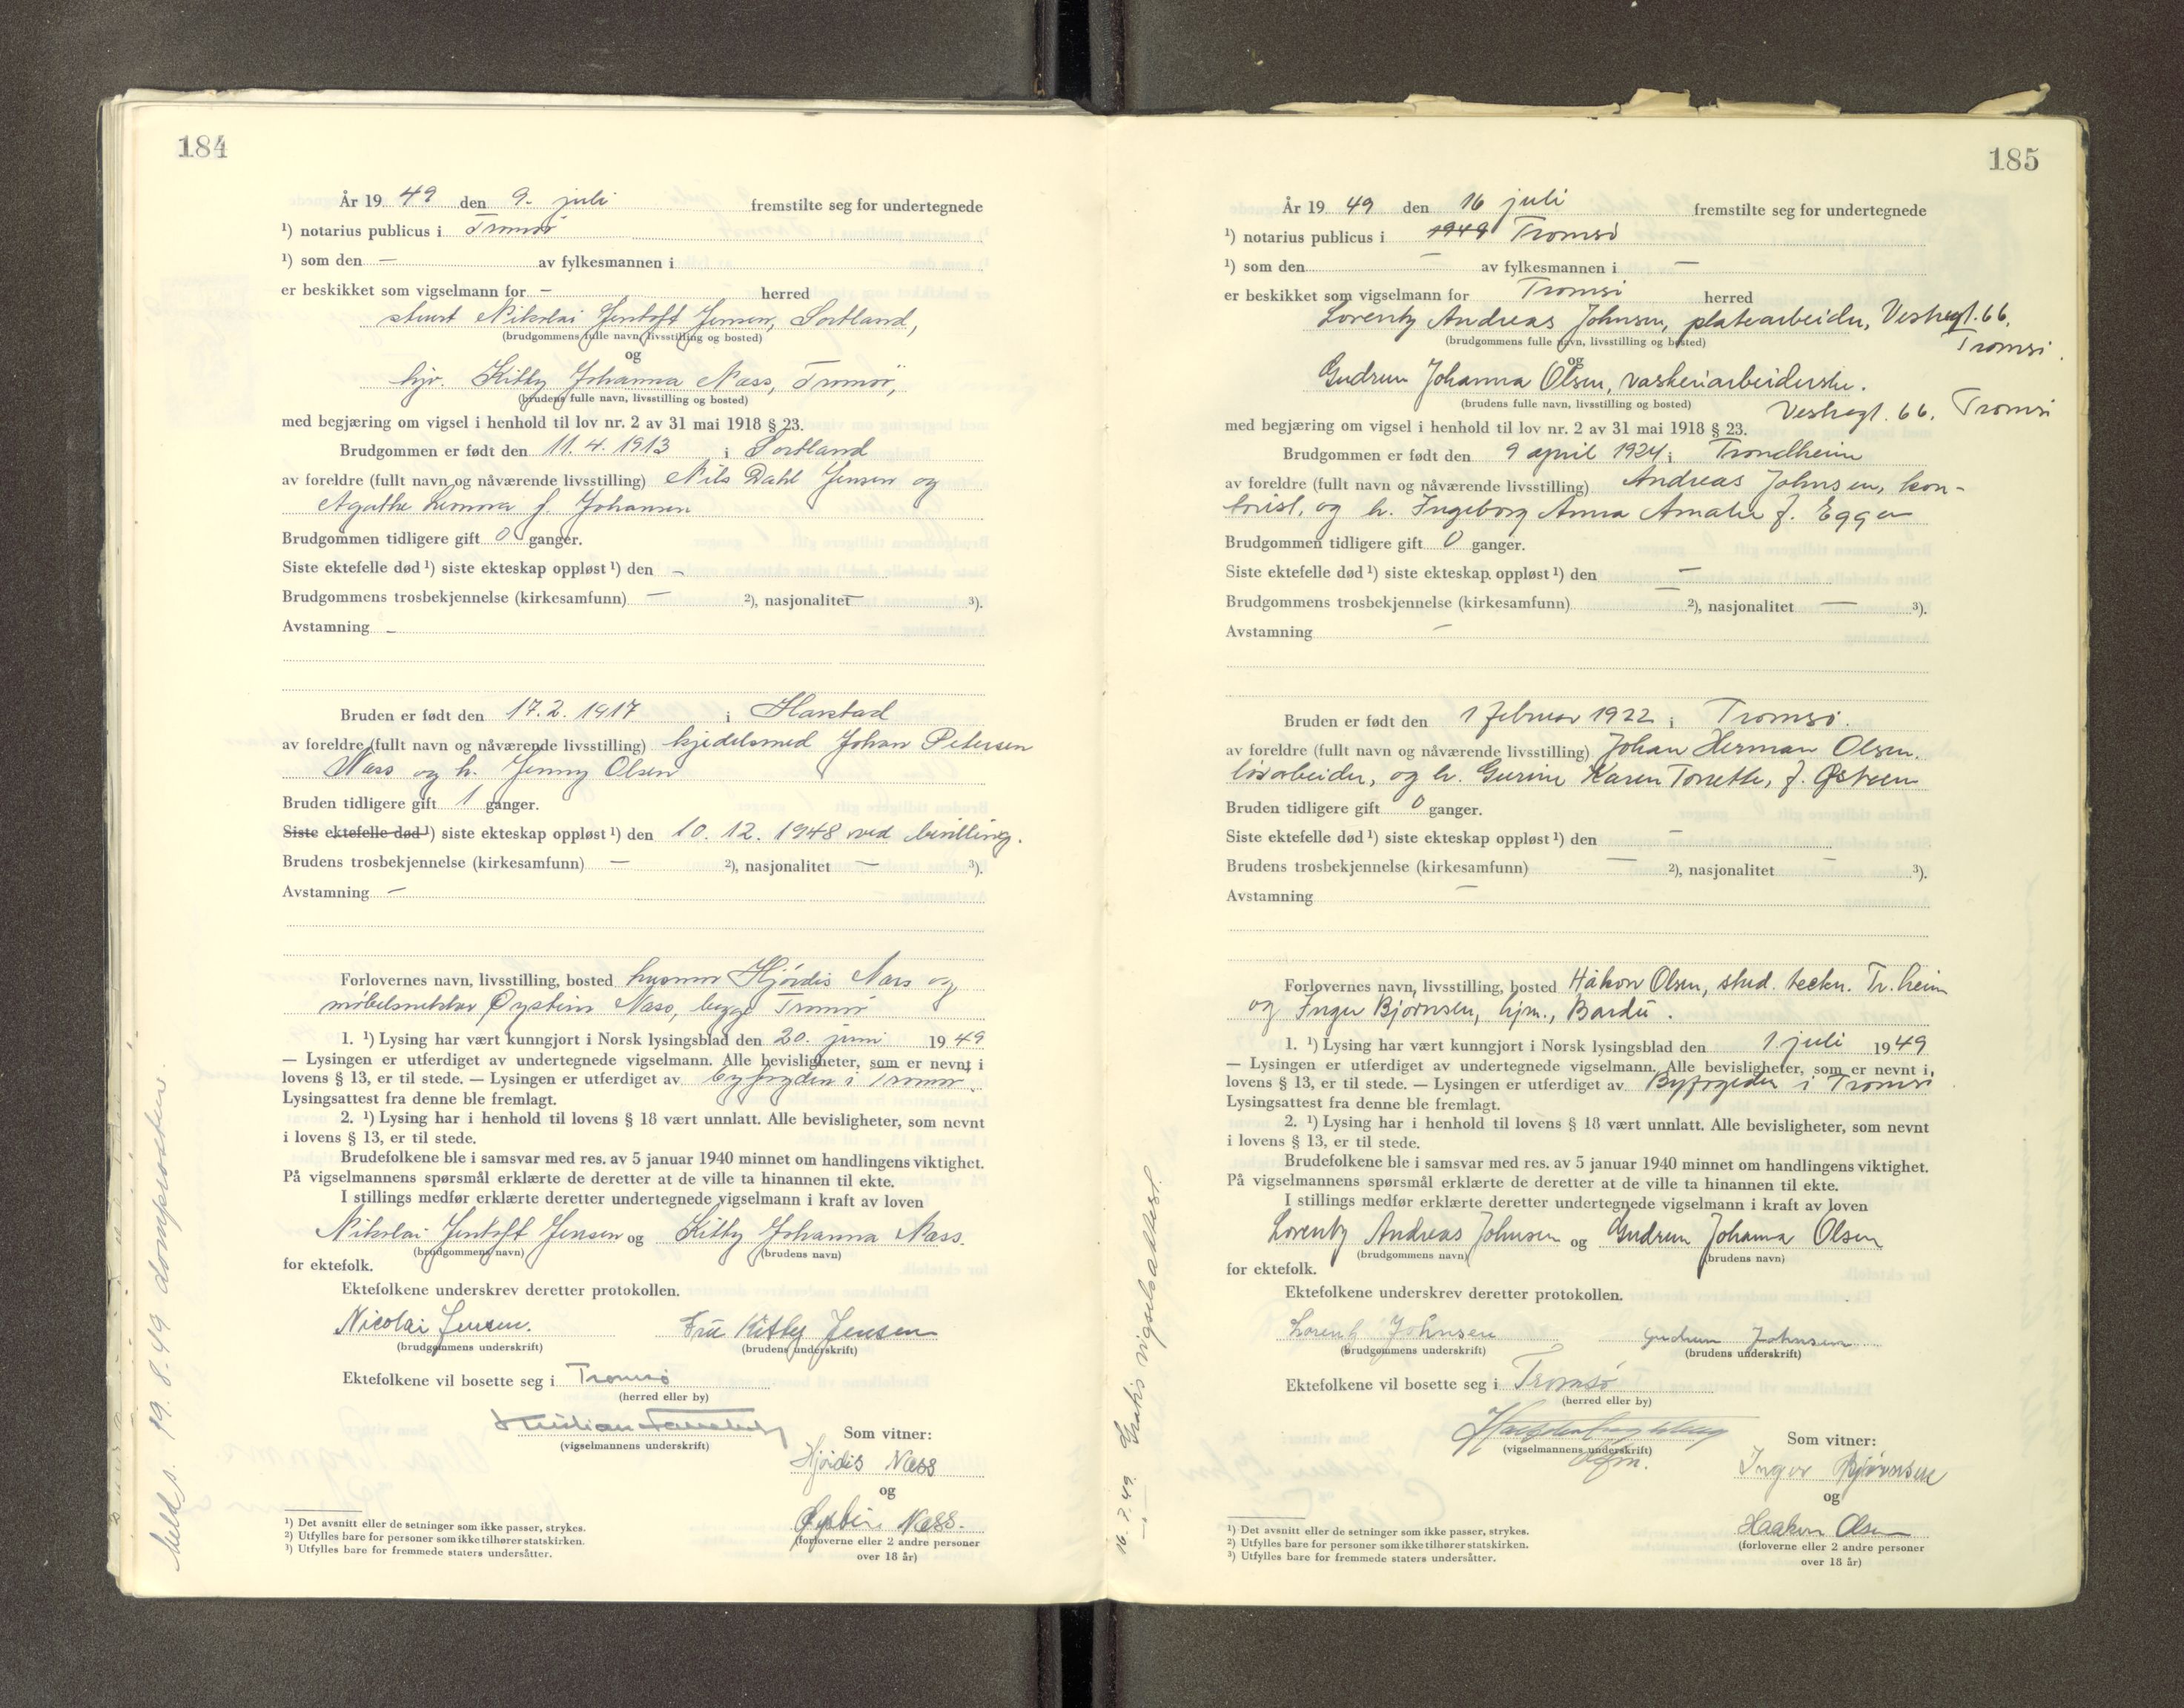 184
År 19 49 den 9. juli fremstilte seg for undertegnede
¹) notarius publicus i Tromsö
¹) som den — av fylkesmannen i
er beskikket som vigselmann for — herred
stuert Nikolai Jentoft Jensen, Sortland,
(brudgommens fulle navn, livsstilling og bosted)
og
hjv. Kitty Johanna Næss, Tromsö,
(brudens fulle navn, livsstilling og bosted)
med begjæring om vigsel i henhold til lov nr. 2 av 31 mai 1918 § 23.
Brudgommen er født den 11. 4. 1913 i Sortland
av foreldre (fullt navn og nåværende livsstilling) Nils Dahl Jensen og
Agathe Lenora f. Johansen
Brudgommen tidligere gift 0 ganger.
Siste ektefelle død ¹) siste ekteskap oppløst ¹) den —
Brudgommens trosbekjennelse (kirkesamfunn) — ²), nasjonalitet — ³).
Avstamning —
Bruden er født den 17. 2. 1917 i Harstad
av foreldre (fullt navn og nåværende livsstilling) kjedelsmed Johan Petersen
Næss og h. Jenny Olsen
Bruden tidligere gift 1 ganger.
Siste ektefelle død ¹) siste ekteskap oppløst ¹) den 10. 12. 1948 ved bevilling.
Brudens trosbekjennelse (kirkesamfunn) — ²), nasjonalitet — ³).
Avstamning —
Forlovernes navn, livsstilling, bosted husmor Hjördis Næss og
møbelsnekker Øystein Næss, begge Tromsö
1. ¹) Lysing har vært kunngjort i Norsk lysingsblad den 20. juni 19 49
— Lysingen er utferdiget av undertegnede vigselmann. Alle bevisligheter, som er nevnt i
lovens § 13, er til stede. — Lysingen er utferdiget av byfogden i Tromsö.
Lysingsattest fra denne ble fremlagt.
2. ¹) Lysing har i henhold til lovens § 18 vært unnlatt. Alle bevisligheter, som nevnt
i lovens § 13, er til stede.
Brudefolkene ble i samsvar med res. av 5 januar 1940 minnet om handlingens viktighet.
På vigselmannens spørsmål erklærte de deretter at de ville ta hinannen til ekte.
I stillings medfør erklærte deretter undertegnede vigselmann i kraft av loven
Nikolai Jentoft Jensen og Kitty Johanna Næss.
(brudgommens navn) (brudens navn)
for ektefolk.
Ektefolkene underskrev deretter protokollen.
Nicolai Jensen. Fru Kitty Jensen
(brudgommens underskrift) (brudens underskrift)
Ektefolkene vil bosette seg i Tromsø
(herred eller by)
Kristian
(vigselmannens underskrift)
Som vitner:
Hjördis Næss
og
Øystein Næss.
(forloverne eller 2 andre personer
over 18 år)
¹) Det avsnitt eller de setninger som ikke passer, strykes.
²) Utfylles bare for personer som ikke tilhører statskirken.
³) Utfylles bare for fremmede staters undersåtter.
Melds. 19. 8. 49 domprosten.
185
År 19 49 den 16 juli fremstilte seg for undertegnede
¹) notarius publicus i 1949 Tromsö
¹) som den — av fylkesmannen i —
er beskikket som vigselmann for Tromsö herred
Lorentz Andreas Johnsen, platearbeider, Vestregt. 66,
Tromsö.
(brudgommens fulle navn, livsstilling og bosted)
og
Gudrun Johanna Olsen, vaskeriarbeiderske.
(brudens fulle navn, livsstilling og bosted)
Vestregt. 66, Tromsö
med begjæring om vigsel i henhold til lov nr. 2 av 31 mai 1918 § 23.
Brudgommen er født den 9 april 1924 i Trondheim
av foreldre (fullt navn og nåværende livsstilling) Andreas Johnsen, kon-
torist, og h. Ingeborg Anna Amalie f. Eggen
Brudgommen tidligere gift 0 ganger.
Siste ektefelle død ¹) siste ekteskap oppløst ¹) den —
Brudgommens trosbekjennelse (kirkesamfunn) — ²), nasjonalitet — ³).
Avstamning —
Bruden er født den 1 februar 1922 i Tromsö.
av foreldre (fullt navn og nåværende livsstilling) Johan Herman Olsen,
løsarbeider, og h. Gurine Karen Tonette, f. Østeen
Bruden tidligere gift 0 ganger.
Siste ektefelle død ¹) siste ekteskap oppløst ¹) den —
Brudens trosbekjennelse (kirkesamfunn) — ²), nasjonalitet — ³).
Avstamning —
Forlovernes navn, livsstilling, bosted Håkon Olsen, stud. techn. Tr.heim
og Inger Bjørnsen, hjm., Bardu.
1. ¹) Lysing har vært kunngjort i Norsk lysingsblad den 1. juli 19 49
— Lysingen er utferdiget av undertegnede vigselmann. Alle bevisligheter, som er nevnt i
lovens § 13, er til stede. — Lysingen er utferdiget av Byfogden i Tromsö
Lysingsattest fra denne ble fremlagt.
2. ¹) Lysing har i henhold til lovens § 18 vært unnlatt. Alle bevisligheter, som nevnt
i lovens § 13, er til stede.
Brudefolkene ble i samsvar med res. av 5 januar 1940 minnet om handlingens viktighet.
På vigselmannens spørsmål erklærte de deretter at de ville ta hinannen til ekte.
I stillings medfør erklærte deretter undertegnede vigselmann i kraft av loven
Lorentz Andreas Johnsen og Gudrun Johanna Olsen
(brudgommens navn) (brudens navn)
for ektefolk.
Ektefolkene underskrev deretter protokollen.
Lorentz Johnsen Gudrun Johnsen
(brudgommens underskrift) (brudens underskrift)
Ektefolkene vil bosette seg i Tromsö
(herred eller by)
(vigselmannens underskrift)
Som vitner:
Inger Bjørnsen
og
Haakon Olsen
(forloverne eller 2 andre personer
over 18 år)
¹) Det avsnitt eller de setninger som ikke passer, strykes.
²) Utfylles bare for personer som ikke tilhører statskirken.
³) Utfylles bare for fremmede staters undersåtter.
16. 7. 49. Gratis vigselsattest.